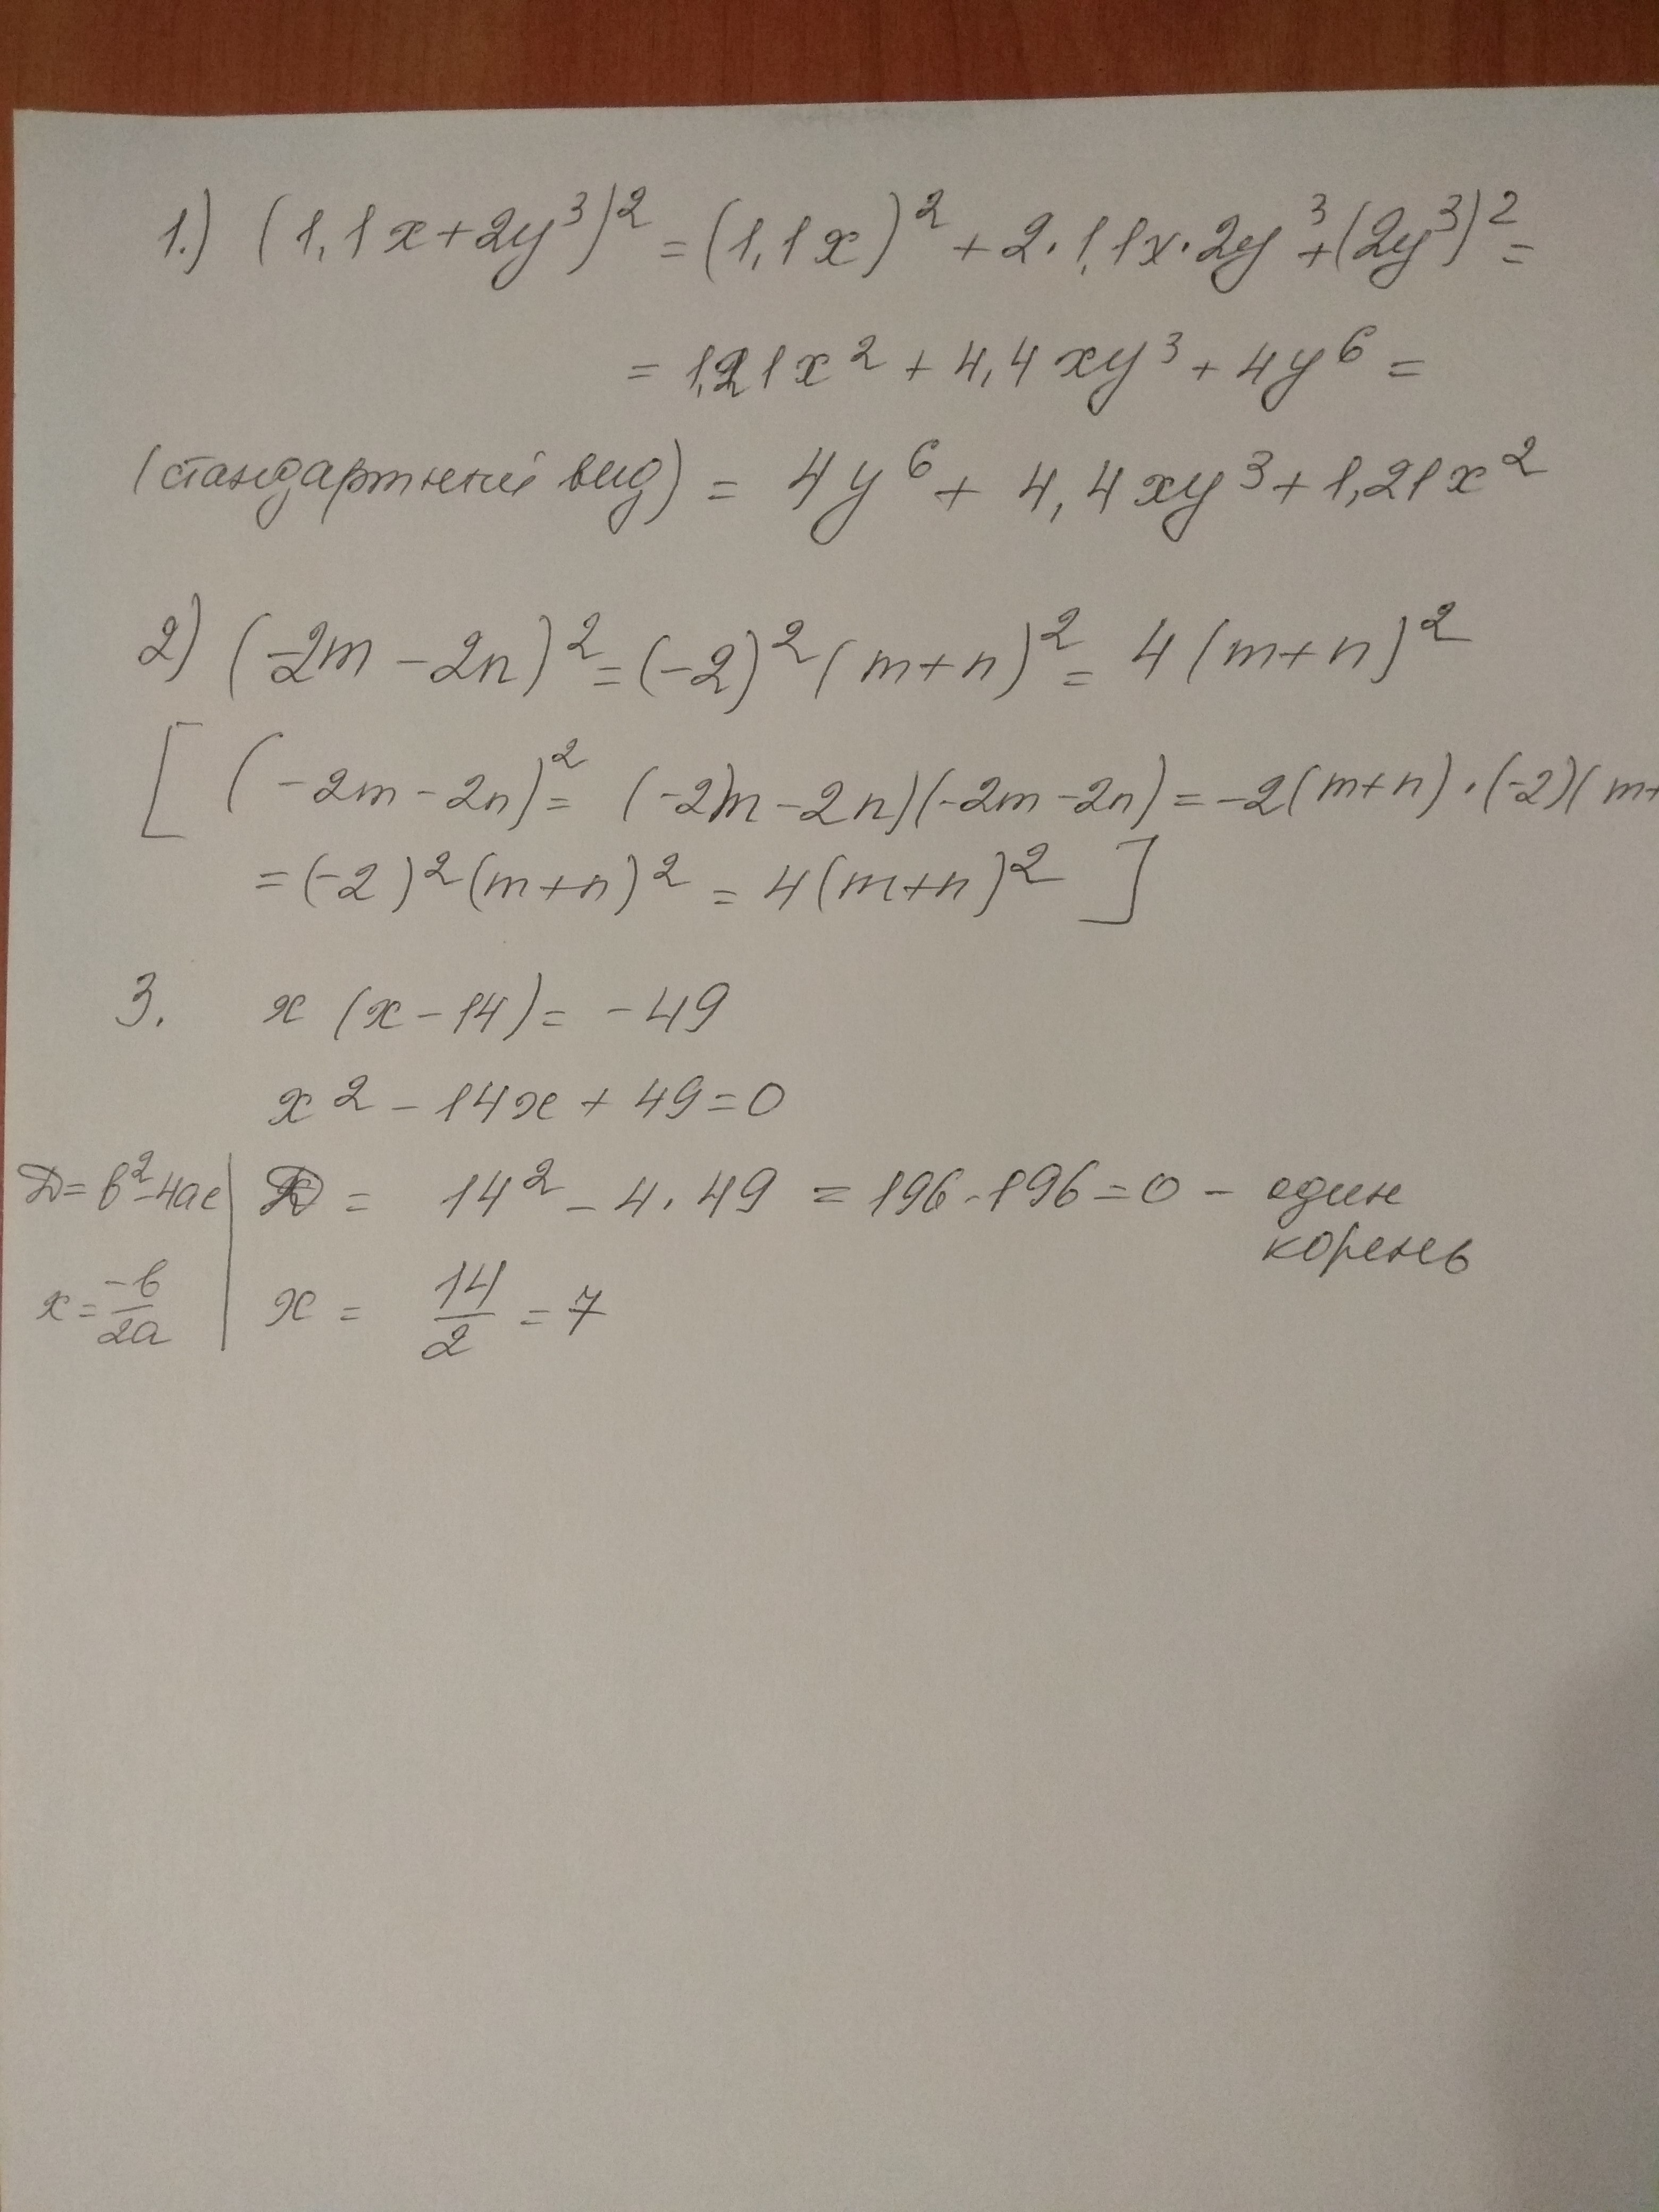 1.) (1,1x+2y³)² = (1,1x)² + 2·1,1x·2y³+(2y³)² =
= 1,21x² + 4,4xy³ + 4y⁶ =
(стандартный вид) = 4y⁶ + 4,4xy³ + 1,21x²
2) (-2m - 2n)² = (-2)² (m+n)² = 4(m+n)²
[ (-2m - 2n)² = (-2m - 2n)(-2m - 2n) = -2(m+n)·(-2)(m+
= (-2)²(m+n)² = 4(m+n)² ]
3. x (x - 14) = -49
x² - 14x + 49 = 0
D = b² - 4ac | D = 14² - 4·49 = 196 - 196 = 0 - один
корень
x = -b/2a | x = 14/2 = 7